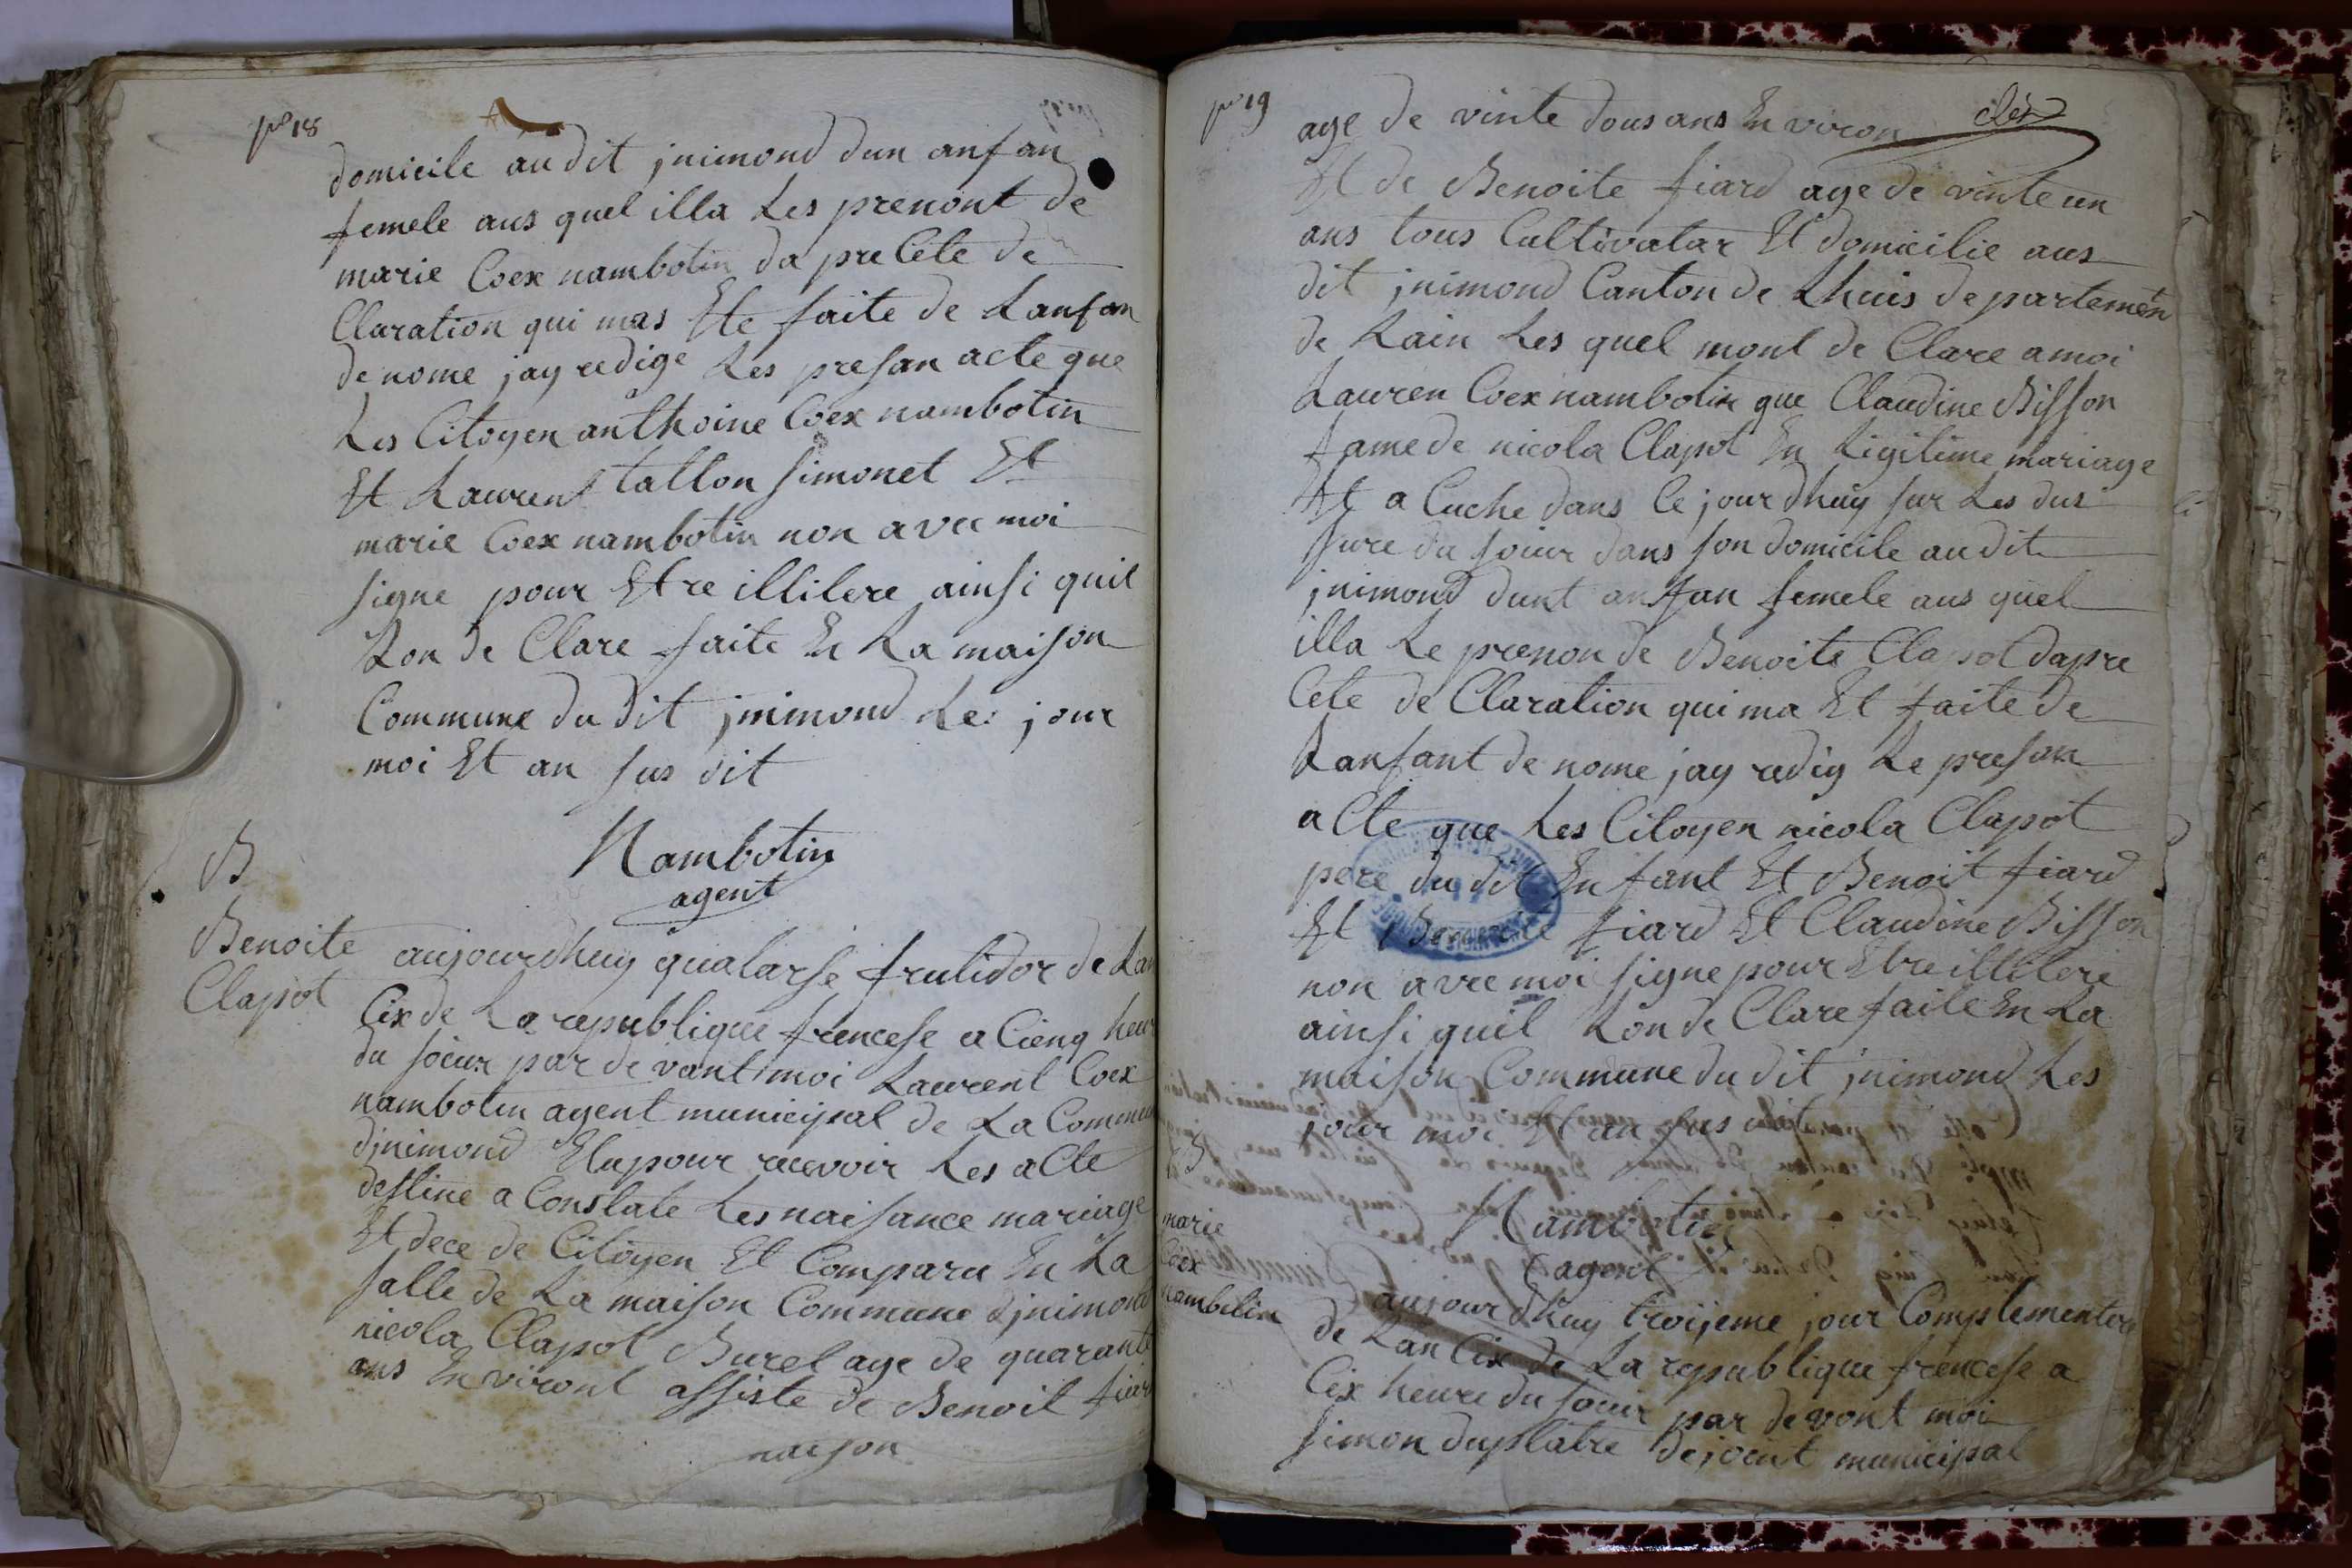 po 18
domicile au dit jnimond dun anfan
femele aus quel illa Les prenont de
marie Coex nambotin da pre Cete de
Claration qui mas Ete faite de Lanfan
de nome jay redige Les presan acte que
Les Citoyen anthoine Coex nambotin
Et Laurent tallon simonet Et
marie Coex nambotin non avec moi
signe pour Etre illitere ainsi quil
Lon de Clare faite En La maison
Commune du dit jnimond Les jour
moi Et an sus dit
Nambotin
agent
B
Benoite
Clapot
aujourdhuy quatarse frutidor de Lan
Cix de La republique francese a Cienq heur
du soieur par de vant moi Laurent Coex
nambotin agent municipal de La Commun
djnimond Elu pour recevoir Les acte
destine a Constate Les naisance mariage
Et dece de Citoyen Et Comparu En La
salle de La maison Commune djnimond
nicola Clapot Burel age de quarante
ans En viront assiste de Benoit fiard
naison
po 19
age de vinte dous ans En viron
Et de Benoite fiard age de vinte un
ans tous Cultivatar Et domicilie aus
dit jnimond Canton de Lhuis departement
de Lain Les quel mont de Clare a moi
Lauren Coex nambotin que Claudine Bisson
fame de nicola Clapot En Ligitime mariage
Et a Cuche dans Ce jour dhuy sur Les dus
sure du soieur dans son domicile au dit
jnimond dunt anfan femele aus quel
illa Le prenon de Benoite Clapot dapre
Cete de Claration qui ma Et faite de
Lanfant de nome jay redig Le presan
a Cte que Les Citoyen nicola Clapot
pere du dit Enfant Et Benoit fiard
Et Benoite fiard Et Claudine Bisson
non avec moi signe pour Etre illitere
ainsi quil Lon de Clare faite En La
maison Commune du dit jnimond Les
jour moi Et an sus dit
Nambotin
agent
B
marie
Coex
nambotin
aujourdhuy troijeme jour Complementere
de Lan Cix de La republique francese a
Cix heure du soieur par de vont moi
simon duplatre dejoint municipal